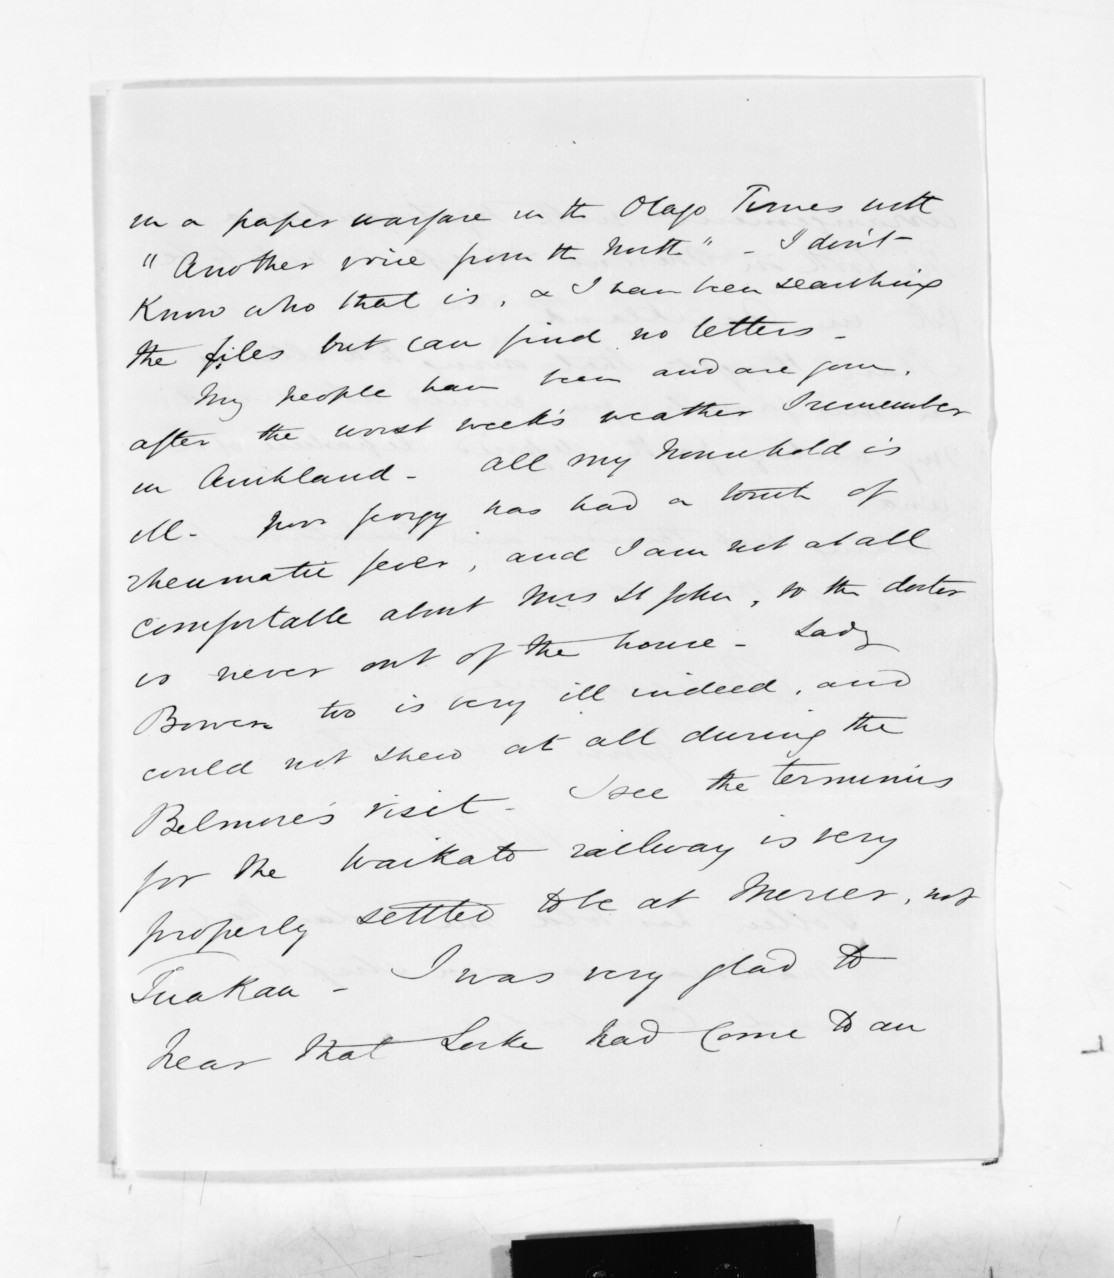 in a paper warfare in the Otago Times with
"Another voice from the North" - I don't
Know who that is, & I have been searching
the files but can find no letters -
My people have been and are poor,
after the worst week's weather I remember
in Auckland - all my household is
ill - poor Georgy has had a touch of
rheumatic fever, and I am not at all
comfortable about Mrs St John, so the doctor
is never out of the house - Lady
Bowen too is very ill indeed, and
could not shew at all during the
Belmore's visit - I see the terminus
for the Waikato railway is very
properly settled to be at Mercer, not
Tuakau - I was very glad to
hear that Locke had come to an